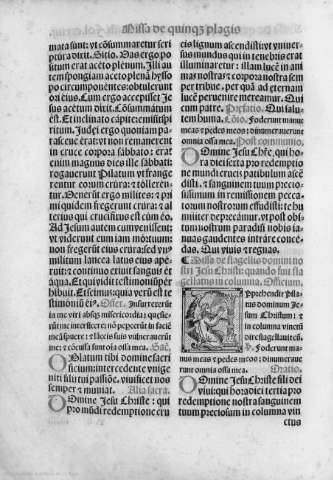 Missa de quinqȝ plagis
mata sunt: vt cōsūmaretur scri
ptura dixit. Sitio. Vas ergo po
situm erat aceto plenum. Illi au
tem spongiam aceto plenā hysso
po circumponentes: obtulerunt
ori eius. Cum ergo accepisset Je
sus acetum dixit. Cōsummatum
est. Et inclinato capite: emisit spi
ritum. Judei ergo quoniam pa
rasceue erat: vt non remanerent
in cruce corpora sabbato: erat
enim magnus dies ille sabbati:
rogauerunt Pilatum vt frange
rentur eorum crura: et tollerēn
tur. Venerūt ergo milites: et pri
mi quidem fregerunt crura: et al
terius qui crucifixus est cū eo.
Ad Jesum autem cum venissent:
vt viderunt eum iam mortuum:
non fregerūt eius crura sed vn9
militum lancea latus eius ape
ruit: et continuo exiuit sanguis et
aqua. Et qui vidit testimoniū per
hibuit. Et scimus: quia verū est te
stimoniū ei9. Offert. Insurrexerūt
in me viri absqȝ misericordia: que-
rūt me interficere: et nō pepercerūt in faciē
mē spuere: et lāceis suis vulnerauerūt
me: et cōcussa sunt oīa ossa mea. Sac.
Oblatum tibi domine sacri
ficium: intercedente vnige
niti filii tui passiōe. viuificet nos
semper et muniat. Alia sacra.
Domine Jesu Christe: qui
pro mūdi redemptione cru
cis lignum ascendisti: vt vniuer-
sus mundus qui in tenebris erat
illuminaretur: illam lucē in ani
mas nostras et corpora nostra sem
per tribue. per quā ad eternam
lucē peruenire mereamur. Qui
cum patre. Prefatio. Qui salu-
tem huma. Cōio. Foderunt manus
meas et pedes meos: dinumerauerunt
omnia ossa mea. Post communio.
Domine Jesu Chre, qui ho-
ra diei sexta pro redemptio
ne mundi crucis patibulum ascē
disti. et sanguinem tuum precio-
sissimum in remissionem pecca-
torum nostrorum effudisti: te hu
militer deprecamur. vt post obi-
tum nostrum paradisi nobis ia-
nuas gaudentes intrare conce-
das. Qui viuis et regnas.
Missa de flagellis domini no
stri Jesu Christi: quando fuit fla
gellatus in columna. Officium.
Apprehendit Pila
tus dominum Je
sum Christum: et
in columna vinctū
dire flagellauit.
Foderunt ma-
nus meas et pedes meos: dinumeraue
runt omnia ossa mea. Oratio.
Domine Jesu Christe fili dei
viui: qui hora diei tertia pro
redemptione nostra sanguinem
tuum preciosum in columna vin
ctus